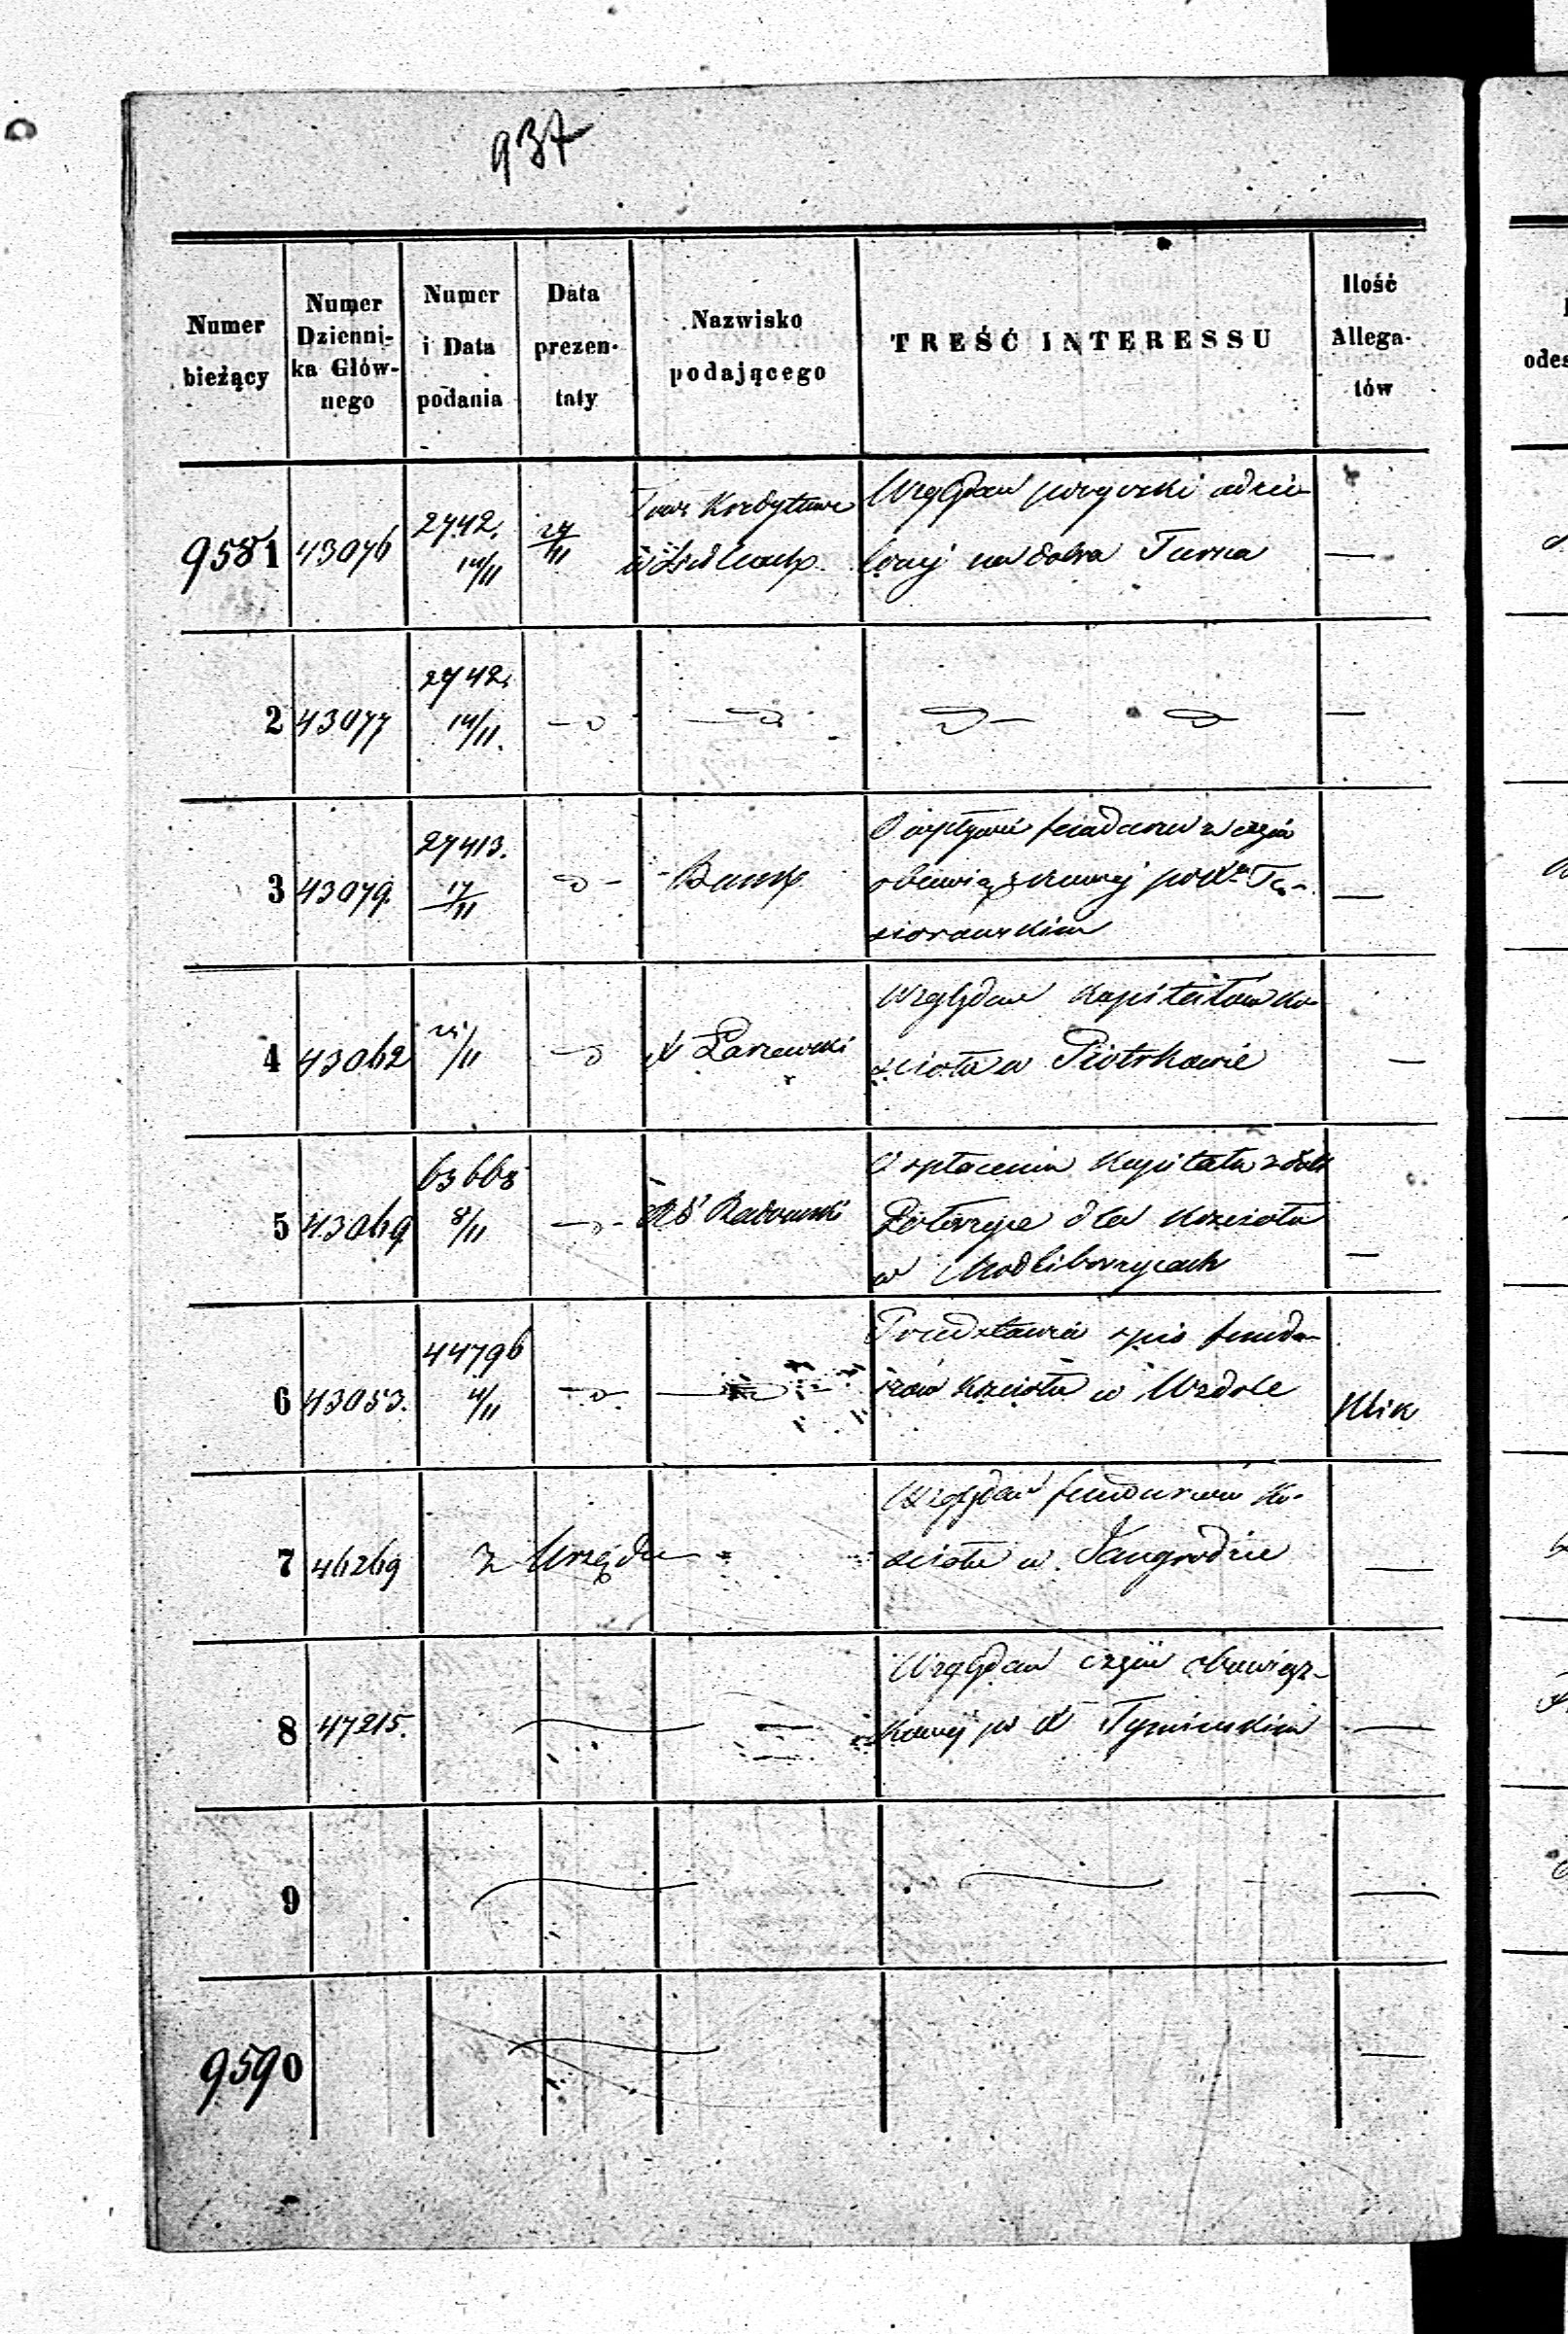 937
Numer bieżący
Numer Dzienni- ka Głów- nego
Numer i Data podania
Data prezen- taty
Nazwisko podającego
TREŚĆ INTERESSU
Ilość Allega- tów
9581 43076 2742. 14/11 27/11
Towr Kredytowe
w Siedlcach
Względem pożyczki udzie
lonej na dobra Turna —
2 43077 2742. 14/11. — —
3 43079. 27413. 17/11 Bank
O wpływie funduszu z części
obowiązkowej po Xę
siorowskim —
4 43062 /11 X Parzewski
Względem kapitałów ko-
ścioła w Piotrkowie —
5 43069 63668 8/11 RG Radomski
O spłacenia kapitału z dóbr
dla kościoła
w Modliborzycach —
6 43053. 44796 4/11
Przedstawia spis fundu-
szów kościoła w Wzdole
Plik
7 46269 z Urzędu
Względem funduszów ko-
ścioła w Jangrodzie —
8 47215.
Względem części obowiąz-
kowej po X Tymińskim —
9 —
9590 —